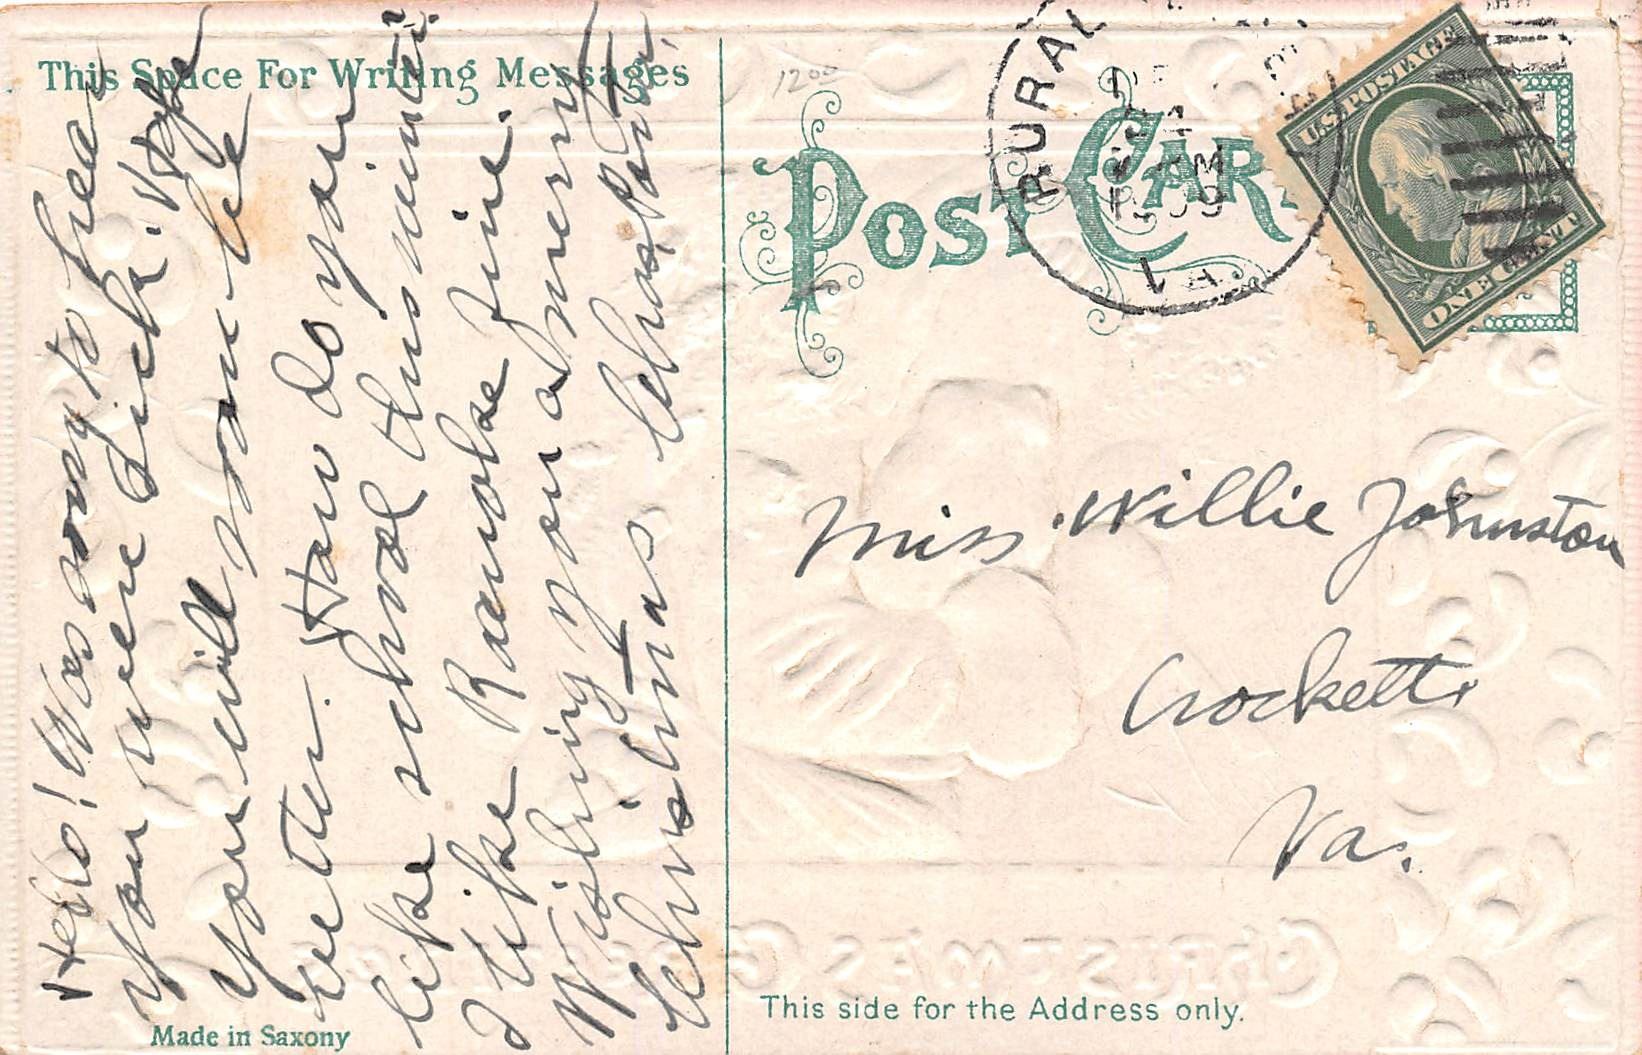 This Space For Writing Messages
Hello! Was sorry to hear
you were sick. Hope
you will soon be
better. How do you
like school this winter?
I like Roanoke fine.
Wishing you a merry
Christmas Chas.
1200
Post Card
RURAL
1909
VA
U.S. POSTAGE
ONE CENT
Miss Willie Johnston
Crockett
Va.
CHRISTMAS
This side for the Address only.
Made in Saxony